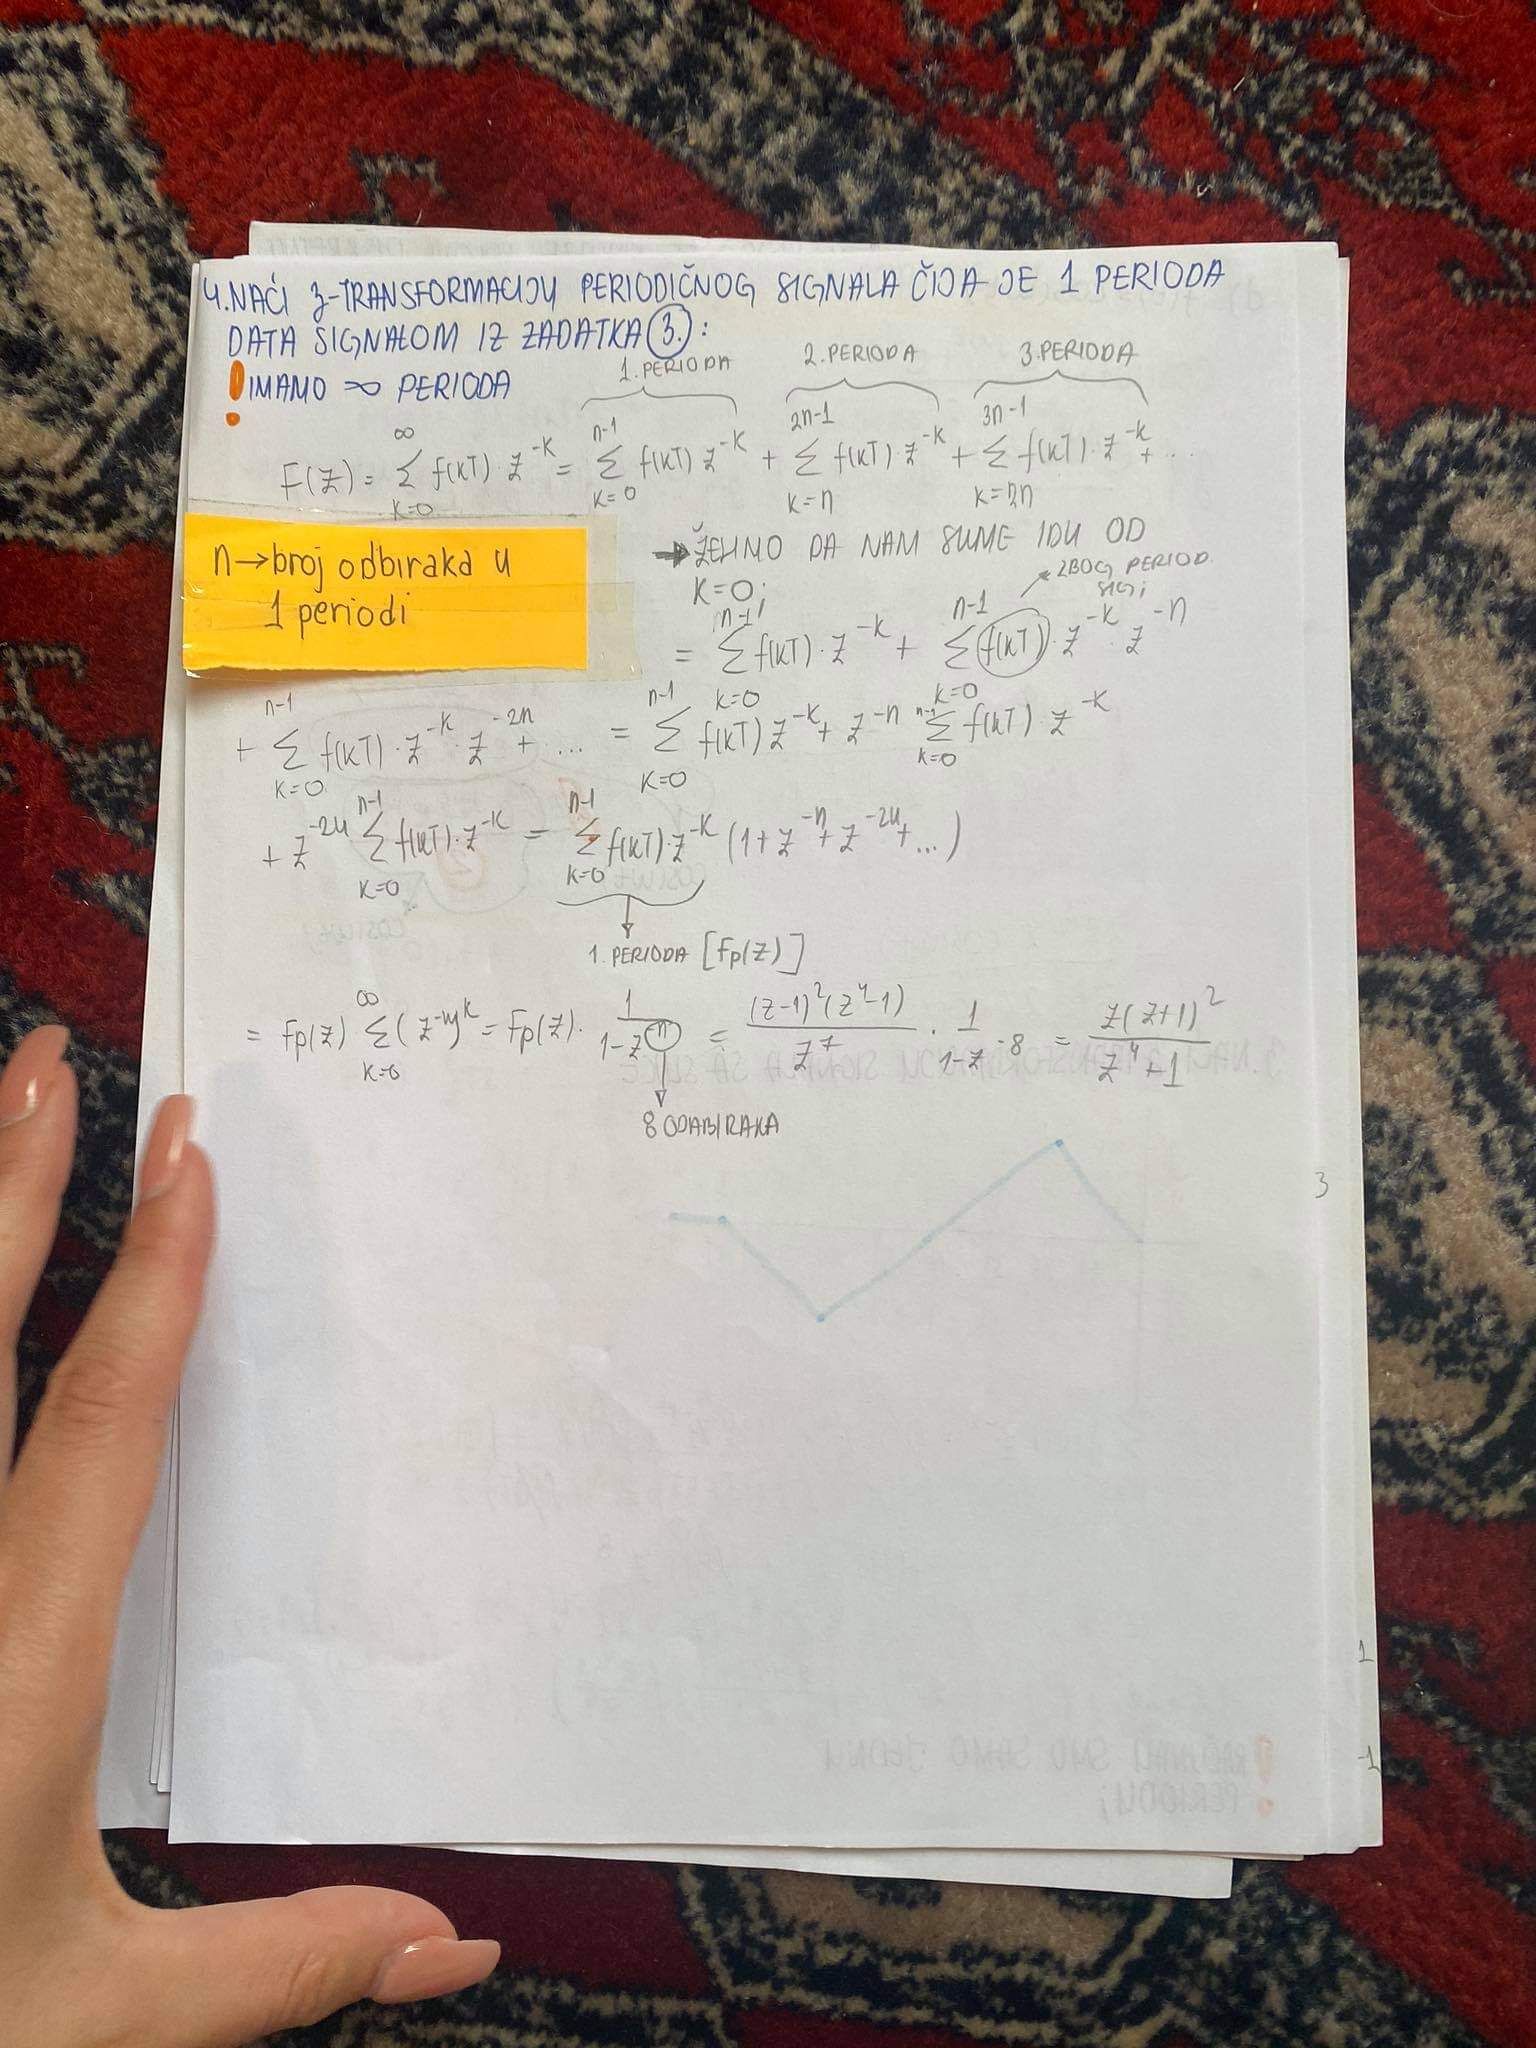 4. NAĆI Z-TRANSFORMACIJU PERIODIČNOG SIGNALA ČIJA JE 1 PERIODA
DATA SIGNALOM IZ ZADATKA 3.:
! IMAMO ∞ PERIODA
1. PERIODA 2. PERIODA 3. PERIODA
F(z) = ∑_{k=0}^{∞} f(kT) · z^{-k} = ∑_{k=0}^{n-1} f(kT) z^{-k} + ∑_{k=n}^{2n-1} f(kT) · z^{-k} + ∑_{k=2n}^{3n-1} f(kT) · z^{-k} + ...
n → broj odbiraka u
1 periodi
→ ŽELIMO DA NAM SUME IDU OD
k=0;
ZBOG PERIOD.
= ∑_{k=0}^{n-1} f(kT) · z^{-k} + ∑_{k=0}^{n-1} f(kT) · z^{-k} · z^{-n}
+ ∑_{k=0}^{n-1} f(kT) · z^{-k} · z^{-2n} + ... = ∑_{k=0}^{n-1} f(kT) z^{-k} + z^{-n} ∑_{k=0}^{n-1} f(kT) · z^{-k}
+ z^{-2n} ∑_{k=0}^{n-1} f(kT) · z^{-k} = ∑_{k=0}^{n-1} f(kT) · z^{-k} (1 + z^{-n} + z^{-2n} + ...)
1. PERIODA [Fp(z)]
= Fp(z) ∑_{k=0}^{∞} (z^{-n})^k = Fp(z) · 1/(1-z^{n}) = (z-1)^2(z^4-1)/z^7 · 1/(1-z^{-8}) = z(z+1)^2/(z^4+1)
8 ODABIRAKA
3
1
-1